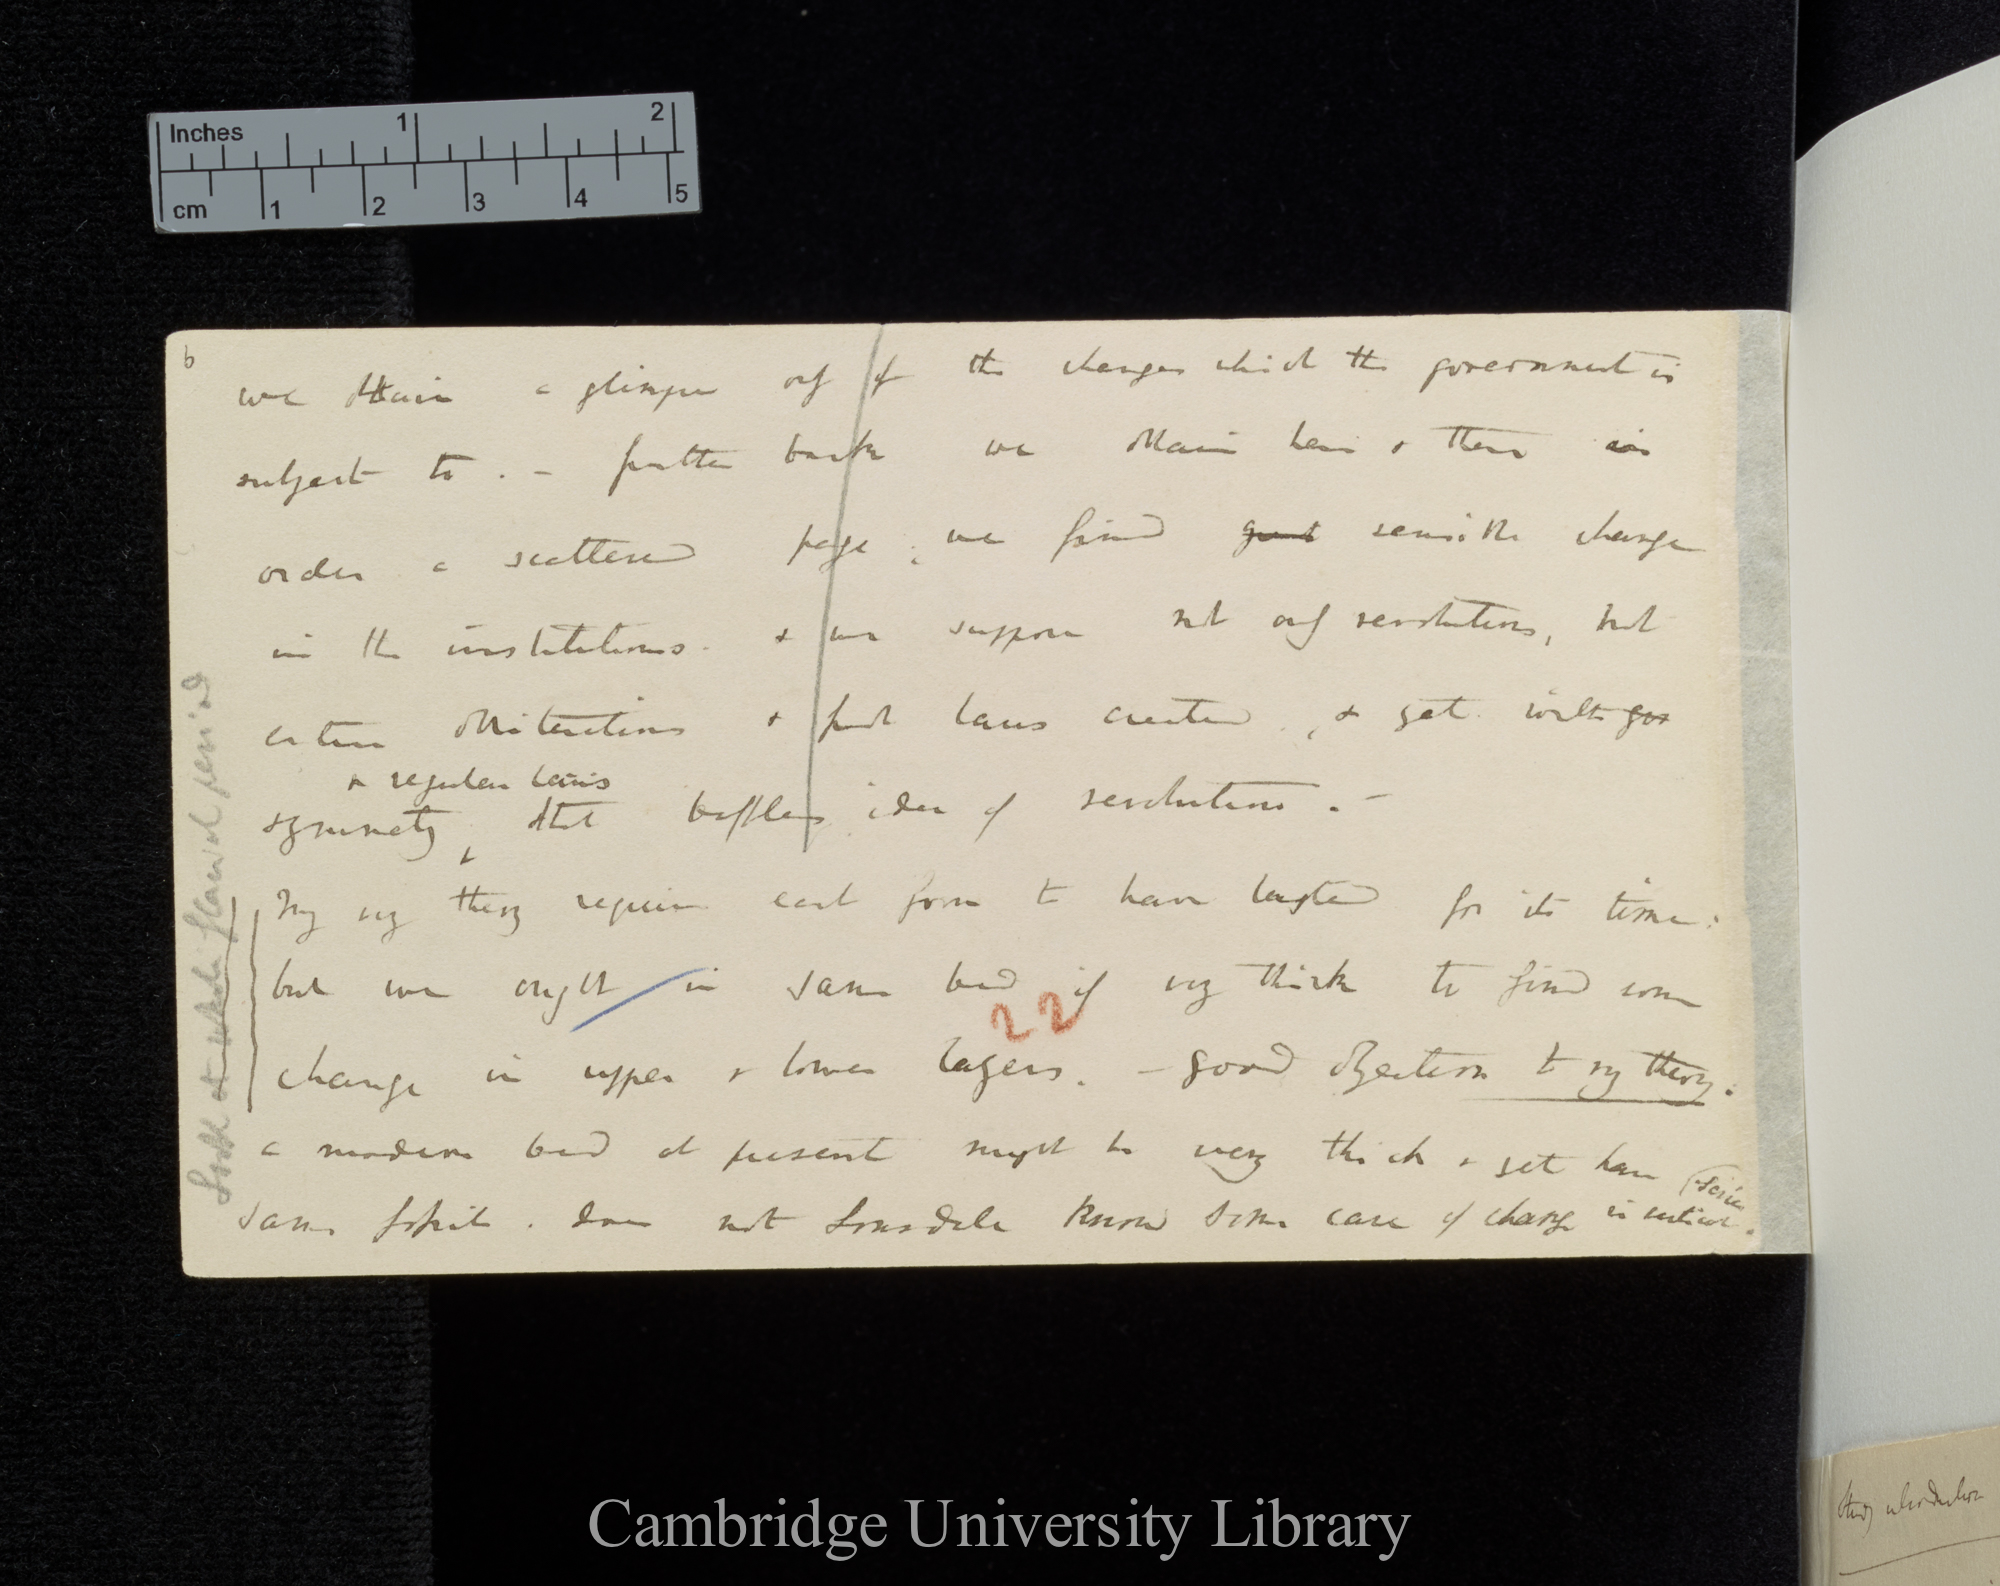 Inches 1 2
cm 1 2 3 4 5
6
we obtain a glimpse only of the changes which the government is
subject to. – further back we obtain here & there in
order a scattered page; we find great sensible change
in the institutions. & we suppose not only revolutions, but
entire obliterations & fresh laws created, & yet with
& regular laws
symmetry, that baffles idea of revolutions. –
My very theory requires each form to have lasted for its time:
but we ought in same bed if very thick to find some
change in upper & lower layers. – good objection to my theory:
a modern bed at present might be very thick & yet have
same fossils. does not Lonsdale know some case of change in vertical series.
22
Look at whole glacial period
Cambridge University Library
introduction